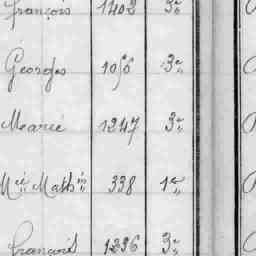 François 1402 3e
Georges 1056 3e
Marie 1247 3e
Mie Mathin 338 1er
François 1236 3e